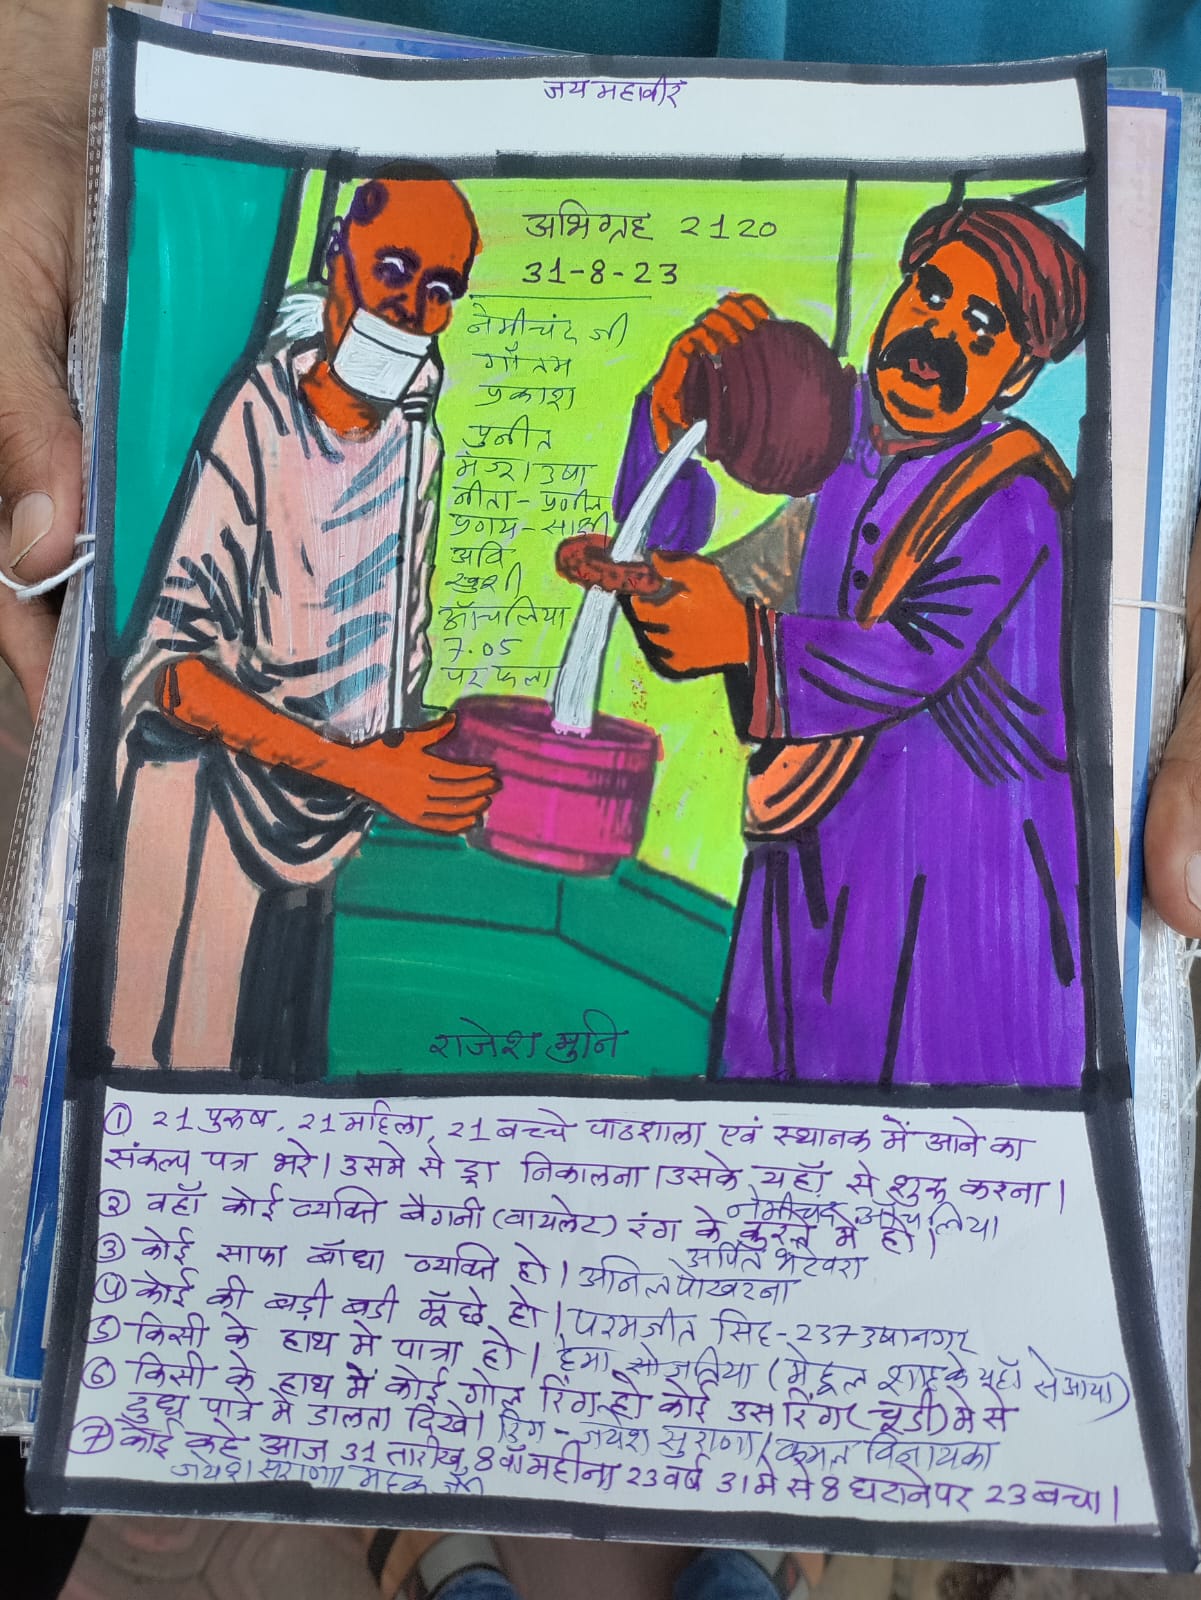 जय महावीर
अभिग्रह 2120
31-8-23
नेमीचंद जी
गौतम
प्रकाश
पुनीत
मंजू। उषा
नीता - प्रनीत
प्रणय - साक्षी
अवि
खुशी
आँचलिया
7.05
पर फला
राजेश मुनि
① 21 पुरुष, 21 महिला, 21 बच्चे पाठशाला एवं स्थानक में आने का
संकल्प पत्र भरे। उसमे से ड्रा निकालना। उसके यहाँ से शुरू करना।
नेमीचंद आँचलिया
② वहाँ कोई व्यक्ति बैगनी (वायलेट) रंग के कुरते में हो।
अर्पित भटेवरा
③ कोई साफा बाँधा व्यक्ति हो। अनिल पोखरना
④ कोई की बड़ी बडी मूँछे हो। परमजीत सिंह - 237 उषानगर
⑤ किसी के हाथ मे पात्रा हो। हेमा सोजतिया (मेहूल शाह के यहाँ से आया)
⑥ किसी के हाथ में कोई गोल रिंग हो कोई उस रिंग (चूडी) मे से
दुध पात्र मे डालता दिखे। रिंग - जयेश सुराणा / कमल विनायका
⑦ कोई कहे आज 31 तारीख, 8 वाँ महीना 23 वर्ष 31 मे से 8 घटाने पर 23 बचा।
जयेश सुराणा